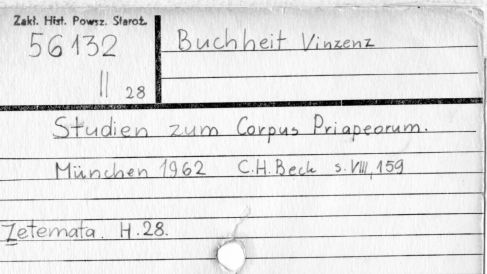 Zakł. Hist. Powsz. Staroż.
56132
II 28
Buchheit Vinzenz
Studien zum Corpus Priapeorum.
München 1962 C.H. Beck s. VIII, 159
Zetemata. H. 28.